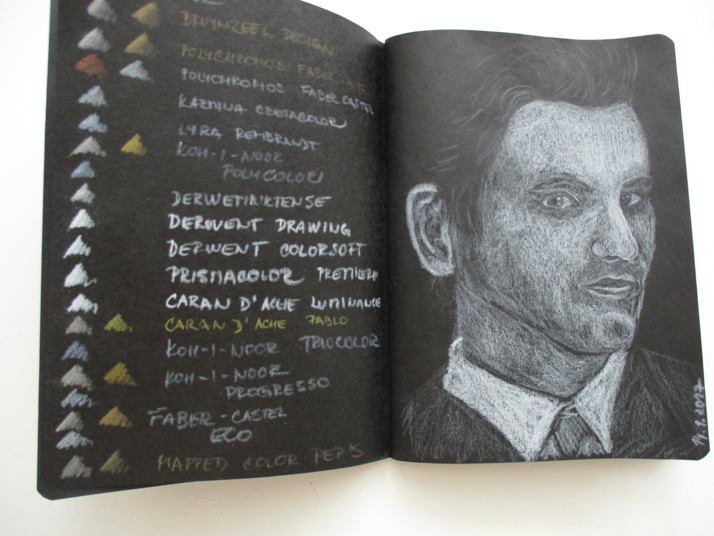 BRUYNZEEL DESIGN
POLYCHROMOS FABER CASTEL
POLYCHROMOS FABER CASTEL
KARMINA CRETACOLOR
LYRA REMBRANDT
KOH-I-NOOR
POLYCOLOR
DERWETINKTENSE
DERWENT DRAWING
DERWENT COLORSOFT
PRISMACOLOR PREMIER
CARAN D'ACHE LUMINANCE
CARAN D'ACHE PABLO
KOH-I-NOOR TRIOCOLOR
KOH-I-NOOR
PROGRESSO
FABER-CASTEL
ECO
MAPPED COLOR PEP'S